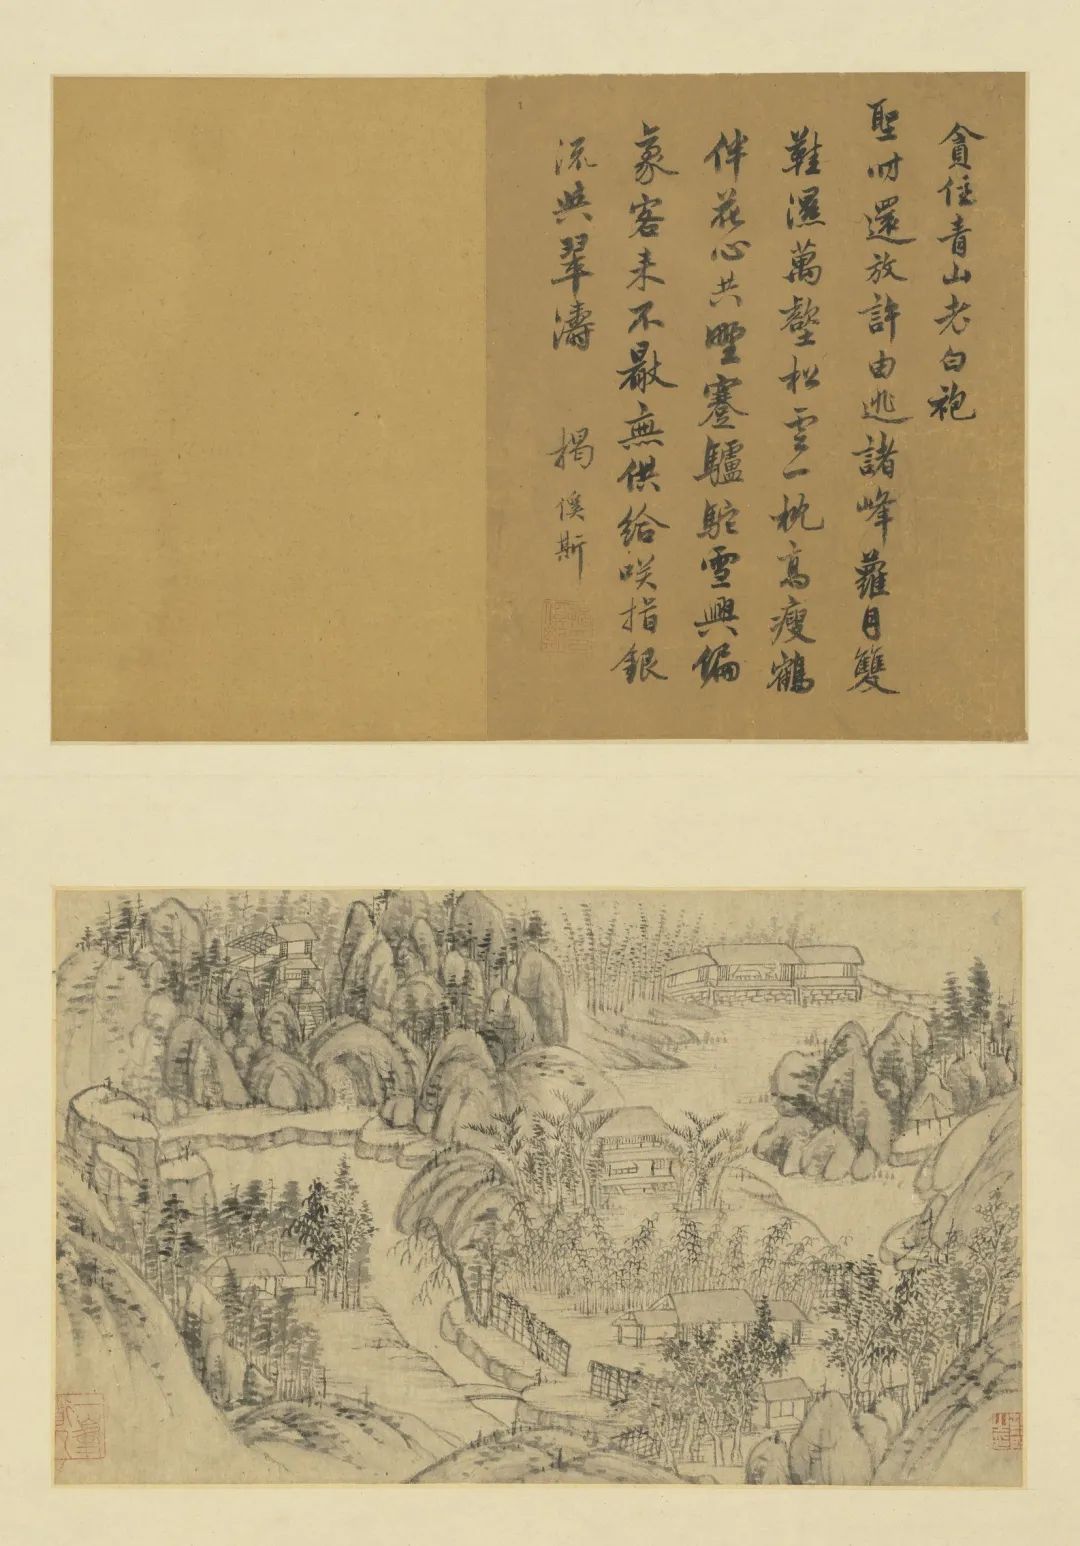 貪住青山老白袍
聖時還放許由逃諸峰蘿月雙
鞋濕萬壑松雲一枕高瘦鶴
伴花心共野蹇驢駝雪興偏
豪客来不厭無供給咲指銀
流與翠濤
揭傒斯